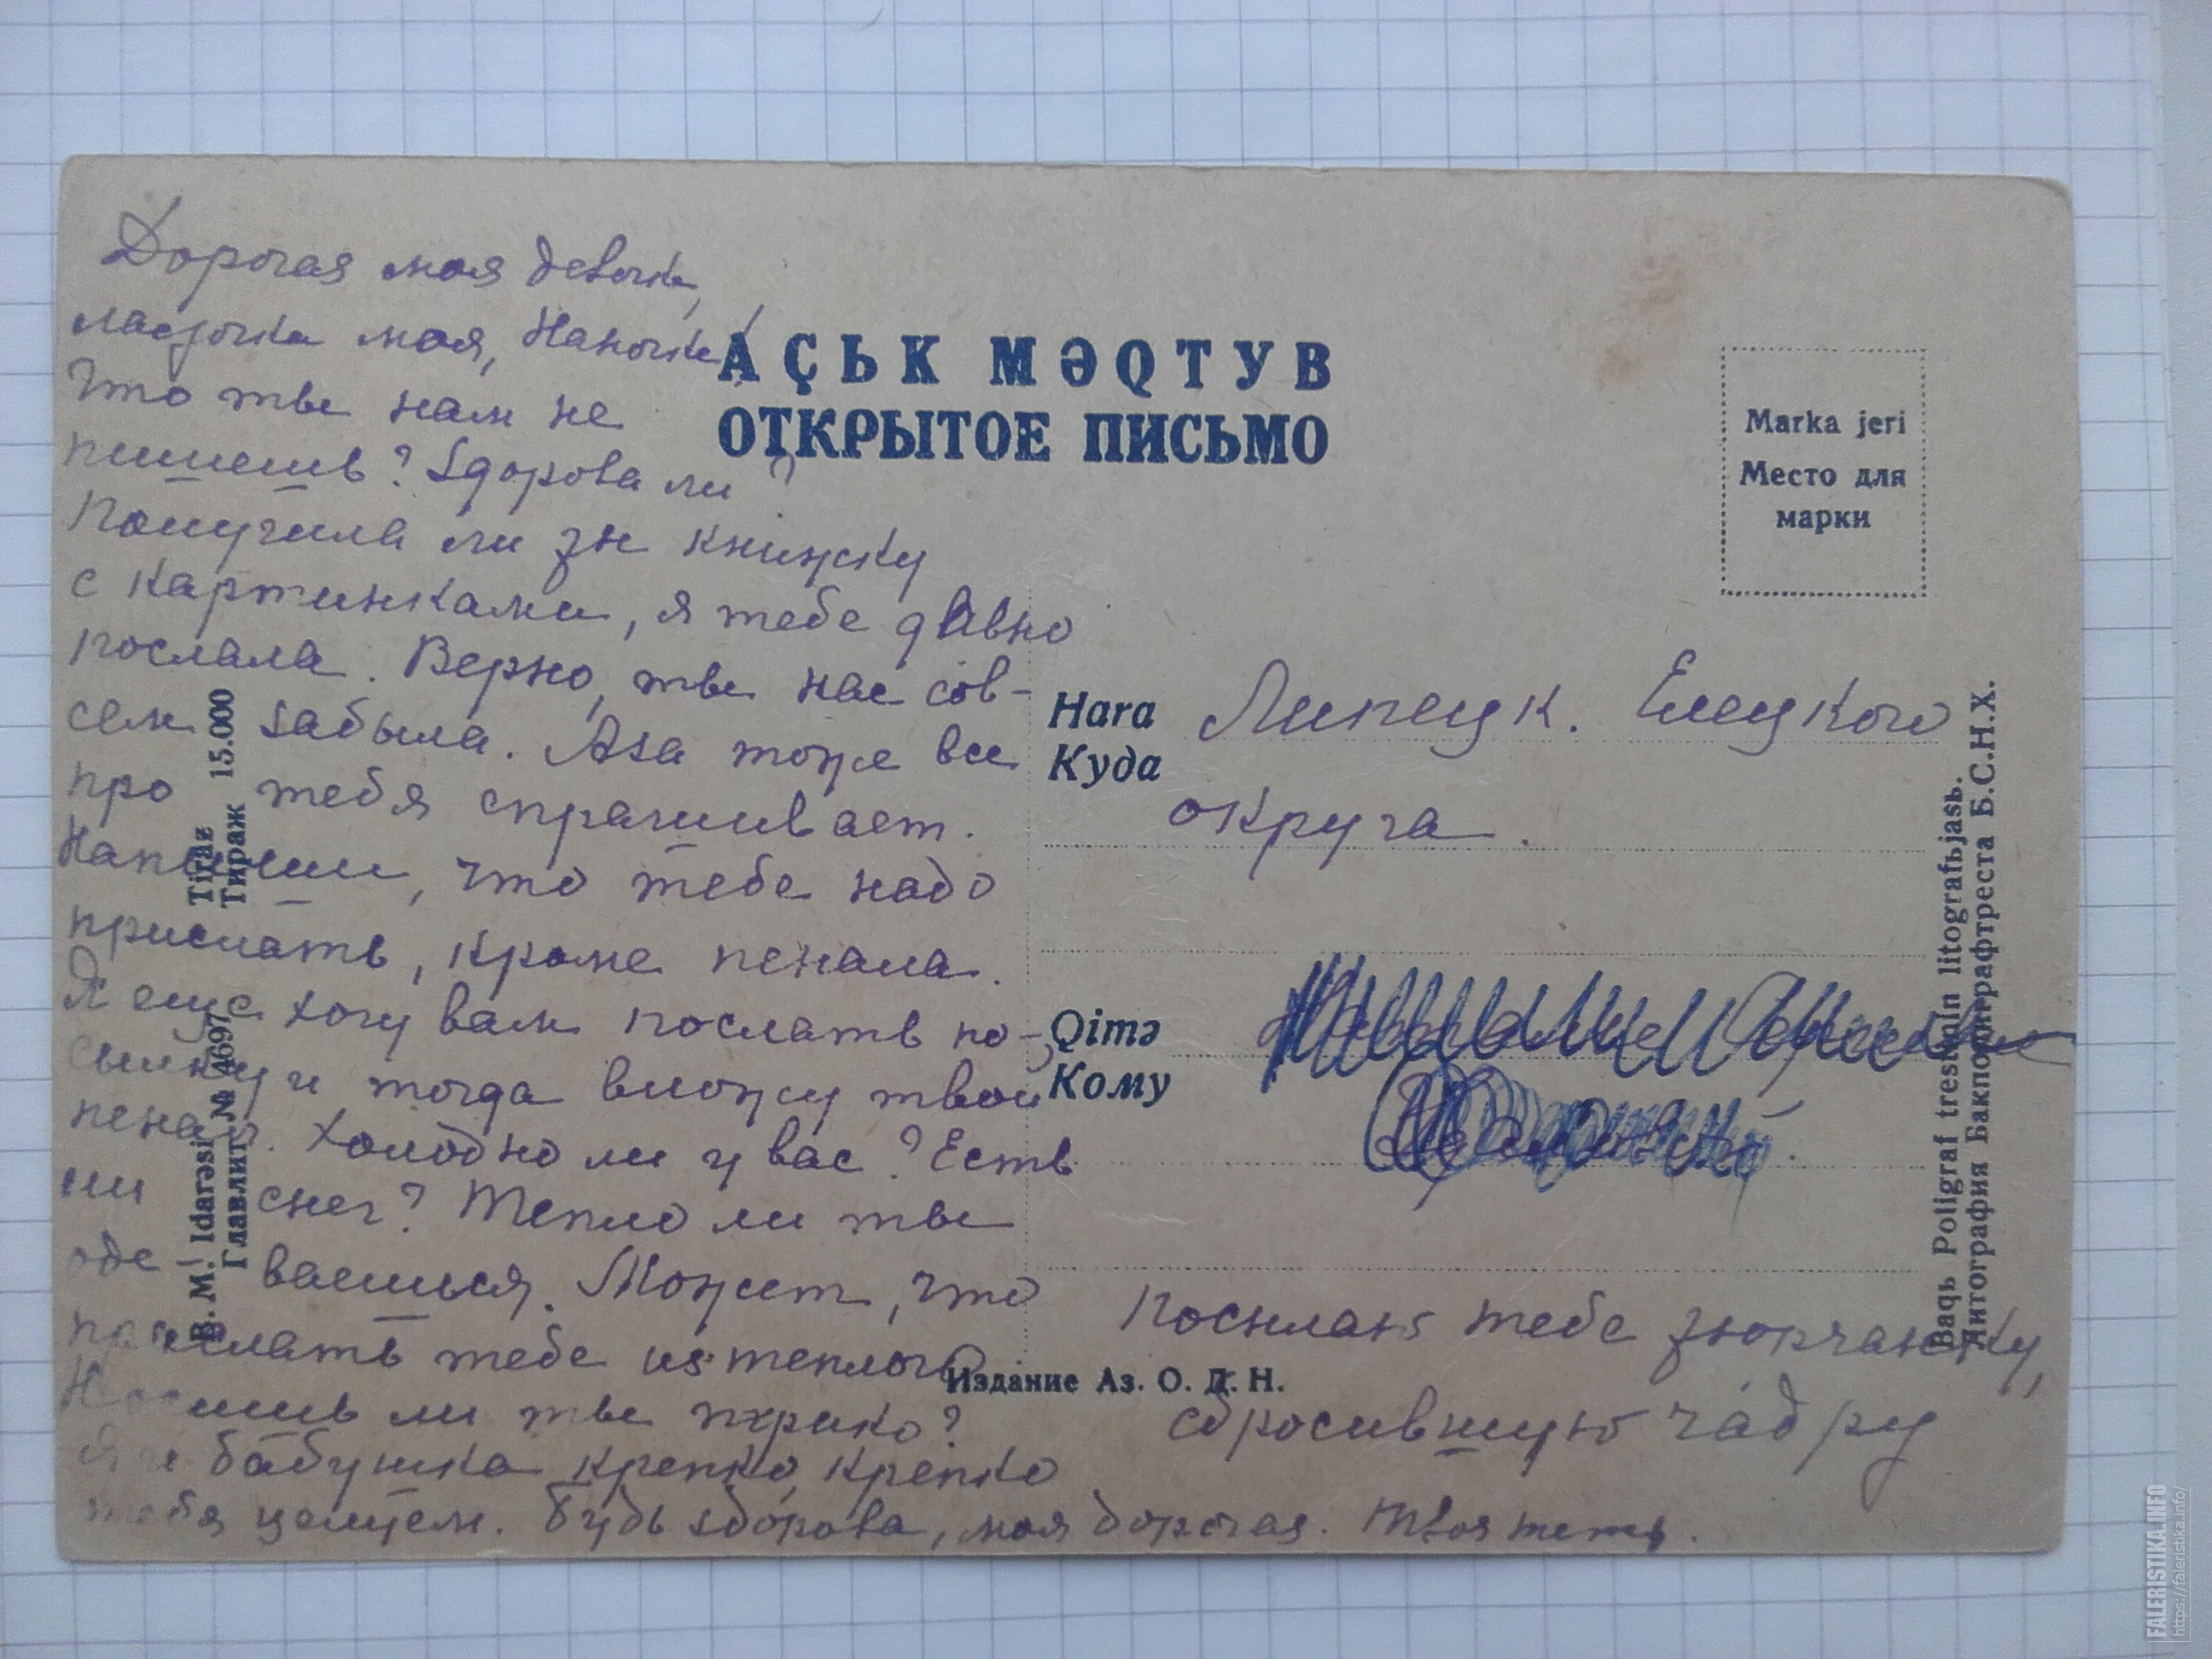 Дорогая моя девочка,
ласточка моя, Наночка!
Что ты нам не
пишешь? Здорова ли?
Получила ли зн книжку
с картинками, я тебе давно
послала. Верно, ты нас сов-
сем забыла. Аза тоже все
про тебя спрашивает.
Напиши, что тебе надо
прислать, кроме пенала.
Я еще хочу вам послать по-
сылку и тогда вложу твой
пенал. Холодно ли у вас? Есть
ли снег? Тепло ли ты
одеваешься. Может, что
послать тебе из теплого
Носишь ли ты трико?
Я и бабушка крепко, крепко
тебя целуем. Будь здорова, моя дорогая. Твоя тетя.
AÇЬK MƏQTYB
ОТКРЫТОЕ ПИСЬМО
Marka jeri
Место для
марки
Hara
Куда
Липецк. Елецкого
округа.
Qimə
Кому
Посылаю тебе тюрчанку,
сбросившую чадру
Издание Аз. О. Д. Н.
B. M. Idarəsi Tiraz
Главлит № 4697 Тираж 15.000
Baqь Poligraf trestinin litografьjasь.
Литография Бакполиграфтреста Б.С.Н.Х.
FALERISTIKA.INFO
https://faleristika.info/